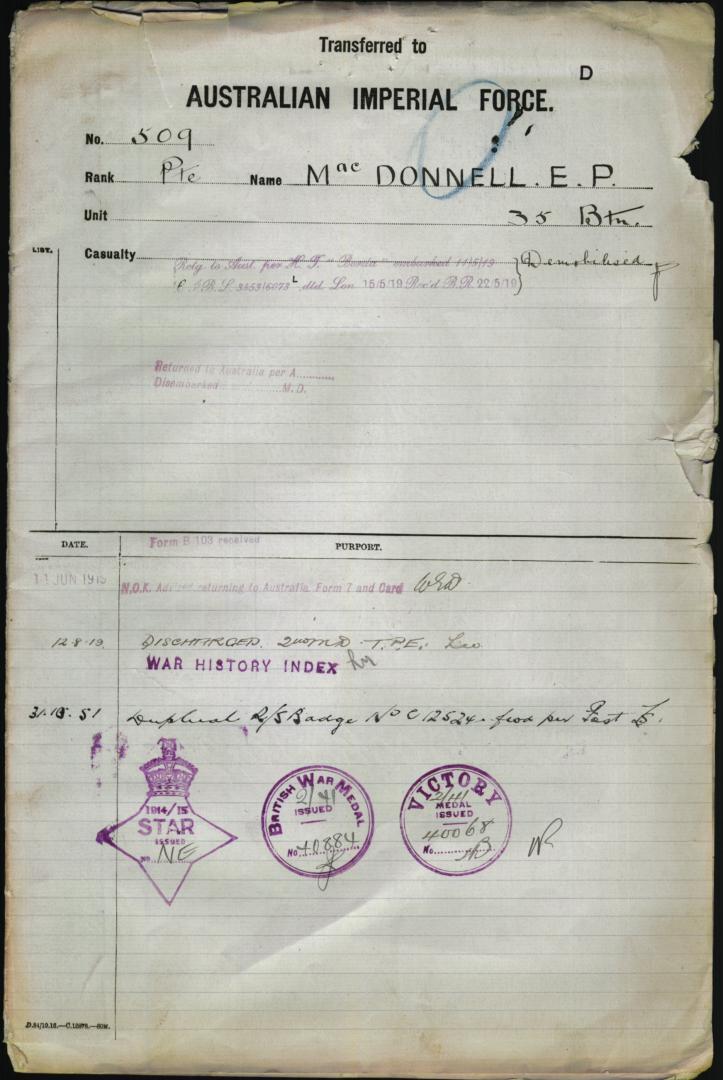 Transferred to
D
AUSTRALIAN IMPERIAL FORCE.
No. 509
Rank Pte Name Mac DONNELL. E. P.
Unit 35 Btn.
LIST.
Casualty Demobilised
Retg to Aust. per H. T. embarked 11/5/19
dtd. Lon 15/5/19 Rec'd B.R. 22/5/19
Returned to Australia per A
Disembarked M.D.
DATE. PURPORT.
Form B 103 received
11 JUN 1919 N.O.K. Advised returning to Australia. Form 7 and Card
12-8-19. DISCHARGED. 2nd M.D. T.P.E.
WAR HISTORY INDEX
51 R/S Badge No C12524 per
1914/15
STAR
ISSUED
No. NE
BRITISH WAR MEDAL
2/41
ISSUED
No. 40884
VICTORY
2/41
MEDAL
ISSUED
40068
No.
D.84/10.16.—C.12876.—50M.